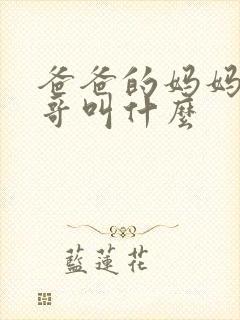 爸爸的妈妈
哥叫什麼
藍蓮花